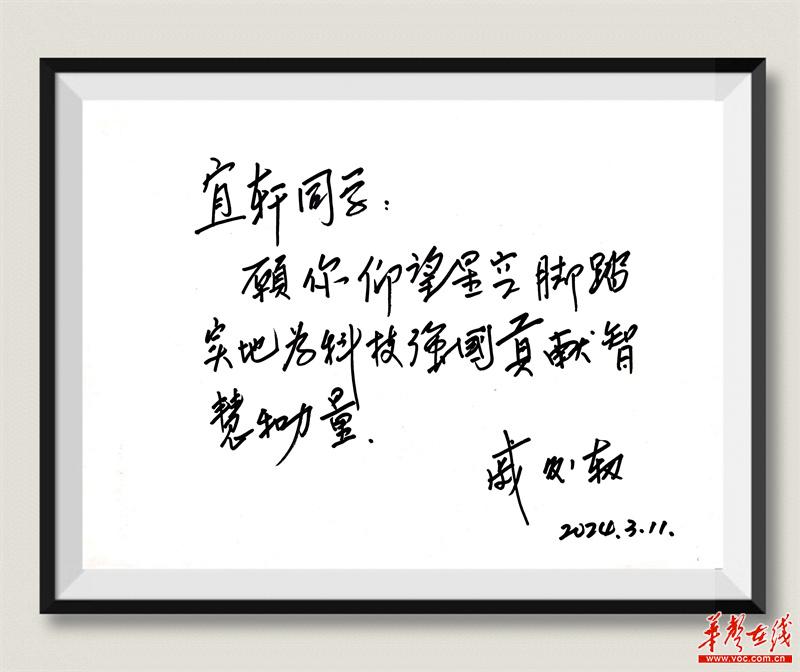 宜轩同学：
願你仰望星空脚踏
实地为科技强國貢献智
慧和力量.
戚发轫
2024.3.11.
华声在线
www.voc.com.cn